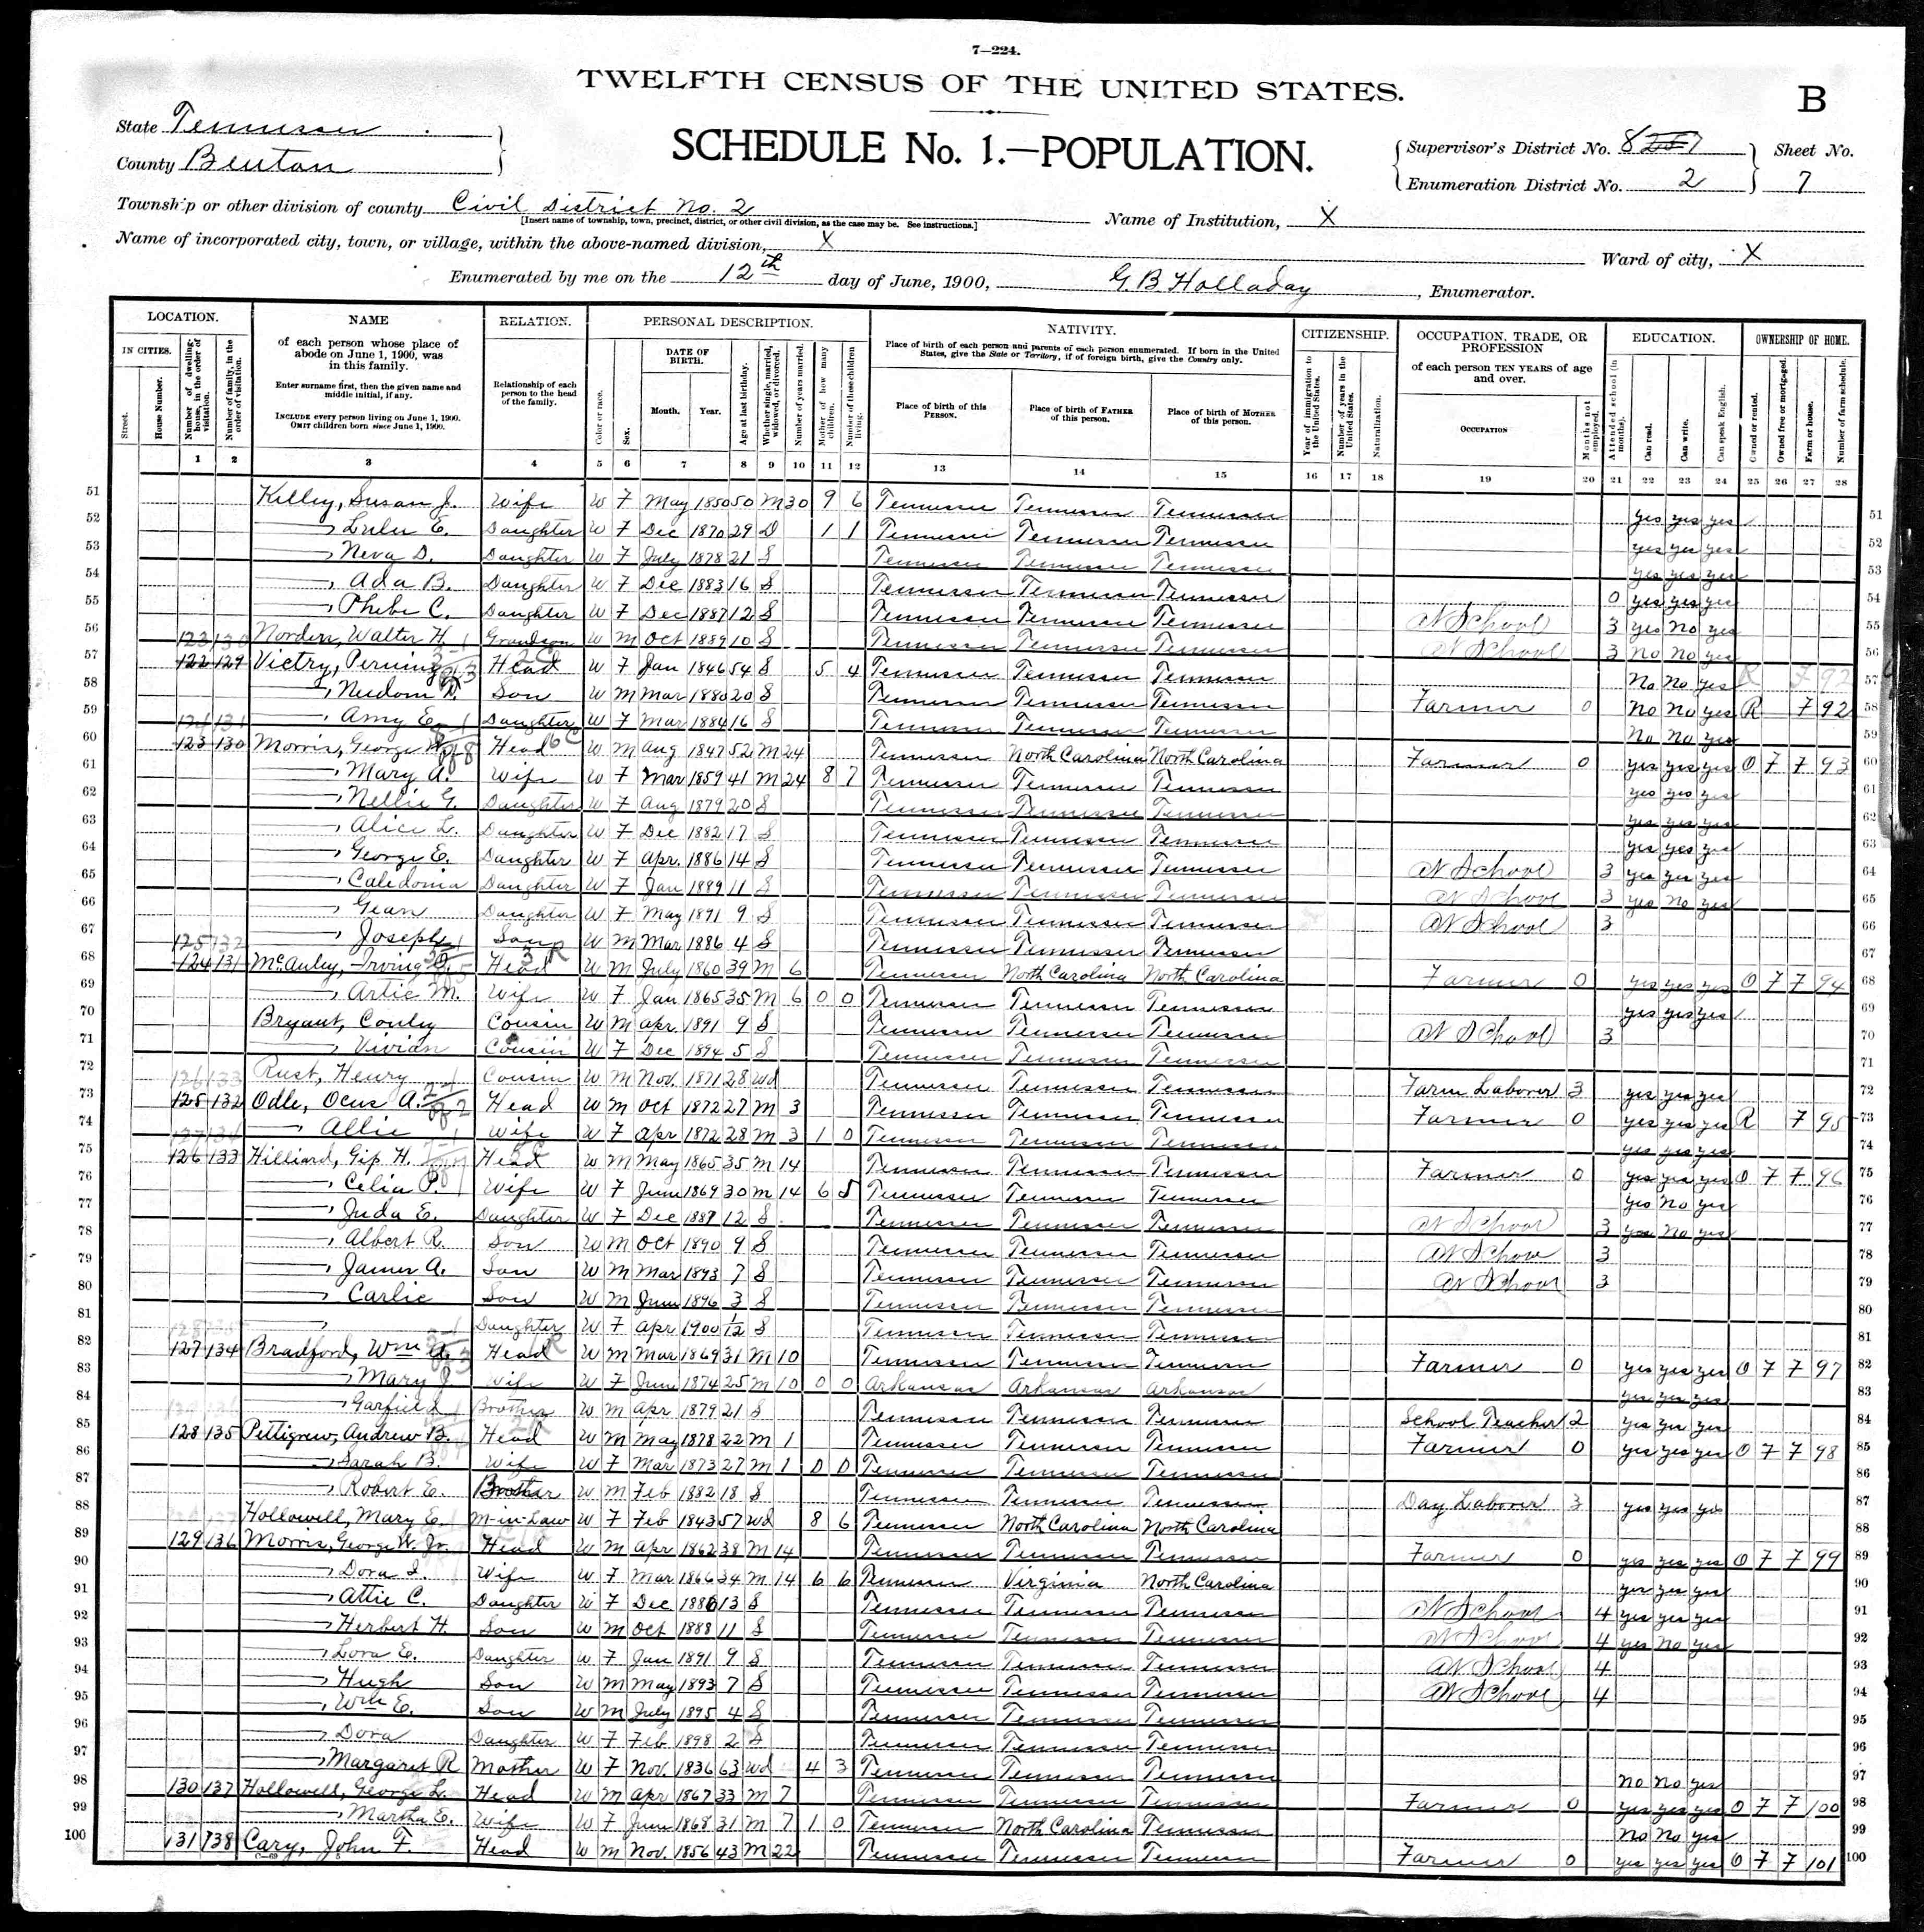 7—224.
TWELFTH CENSUS OF THE UNITED STATES.
B
State Tennessee
SCHEDULE No. 1.—POPULATION.
County Benton
Supervisor's District No. 8
Sheet No.
Enumeration District No. 2
7
Township or other division of county Civil District No. 2
[Insert name of township, town, precinct, district, or other civil division, as the case may be. See instructions.]
Name of Institution, X
Name of incorporated city, town, or village, within the above-named division, X
Ward of city, X
Enumerated by me on the 12th day of June, 1900, G B Holladay, Enumerator.
LOCATION. NAME RELATION. PERSONAL DESCRIPTION. NATIVITY. CITIZENSHIP. OCCUPATION, TRADE, OR PROFESSION EDUCATION. OWNERSHIP OF HOME.
IN CITIES. Street. House Number. Number of dwelling-house, in the order of visitation. Number of family, in the order of visitation.
of each person whose place of abode on June 1, 1900, was in this family.
Enter surname first, then the given name and middle initial, if any.
INCLUDE every person living on June 1, 1900. OMIT children born since June 1, 1900.
Relationship of each person to the head of the family.
Color or race. Sex. DATE OF BIRTH. Month. Year. Age at last birthday. Whether single, married, widowed, or divorced. Number of years married. Mother of how many children. Number of these children living.
Place of birth of each person and parents of each person enumerated. If born in the United States, give the State or Territory; if of foreign birth, give the Country only.
Place of birth of this PERSON. Place of birth of FATHER of this person. Place of birth of MOTHER of this person.
Year of immigration to the United States. Number of years in the United States. Naturalization.
of each person TEN YEARS of age and over.
OCCUPATION Months not employed.
Attended school (in months). Can read. Can write. Can speak English.
Owned or rented. Owned free or mortgaged. Farm or house. Number of farm schedule.
1 2 3 4 5 6 7 8 9 10 11 12 13 14 15 16 17 18 19 20 21 22 23 24 25 26 27 28
51 Kelley, Susan J. Wife W F May 1850 50 M 30 9 6 Tennessee Tennessee Tennessee yes yes yes 51
52 —, Lulu E. Daughter W F Dec 1870 29 D 1 1 Tennessee Tennessee Tennessee yes yes yes 52
53 —, Neva D. Daughter W F July 1878 21 S Tennessee Tennessee Tennessee yes yes yes 53
54 —, Ada B. Daughter W F Dec 1883 16 S Tennessee Tennessee Tennessee 0 yes yes yes 54
55 —, Phebe C. Daughter W F Dec 1887 12 S Tennessee Tennessee Tennessee At School 3 yes No yes 55
56 Norden, Walter H Grandson W M Oct 1889 10 S Tennessee Tennessee Tennessee At School 3 No No yes 56
57 122 129 Victry, Head W F Jan 1846 54 S 5 4 Tennessee Tennessee Tennessee No No yes 57
58 —, Son W M Mar 1880 20 S Tennessee Tennessee Tennessee Farmer 0 No No yes R F 92 58
59 —, Amy E. Daughter W F Mar 1884 16 S Tennessee Tennessee Tennessee No No yes 59
60 123 130 Morris, George W. Head W M Aug 1847 52 M 24 Tennessee North Carolina North Carolina Farmer 0 yes yes yes O F F 93 60
61 —, Mary A. Wife W F Mar 1859 41 M 24 8 7 Tennessee Tennessee Tennessee yes yes yes 61
62 —, Nellie G. Daughter W F Aug 1879 20 S Tennessee Tennessee Tennessee yes yes yes 62
63 —, Alice L. Daughter W F Dec 1882 17 S Tennessee Tennessee Tennessee yes yes yes 63
64 —, George E. Daughter W F Apr. 1886 14 S Tennessee Tennessee Tennessee At School 3 yes yes yes 64
65 —, Caledonia Daughter W F Jan 1889 11 S Tennessee Tennessee Tennessee At School 3 yes No yes 65
66 —, Gean Daughter W F May 1891 9 S Tennessee Tennessee Tennessee At School 3 66
67 —, Joseph Son W M Mar 1886 4 S Tennessee Tennessee Tennessee 67
68 124 131 McAuley, Irving Head W M July 1860 39 M 6 Tennessee North Carolina North Carolina Farmer 0 yes yes yes O F F 94 68
69 —, Artie M. Wife W F Jan 1865 35 M 6 0 0 Tennessee Tennessee Tennessee yes yes yes 69
70 Bryant, Conley Cousin W M Apr 1891 9 S Tennessee Tennessee Tennessee At School 3 70
71 —, Vivian Cousin W F Dec 1894 5 S Tennessee Tennessee Tennessee 71
72 Rust, Henry Cousin W M Nov. 1871 28 Wd Tennessee Tennessee Tennessee Farm Laborer 3 yes yes yes 72
73 125 132 Odle, Ocus A. Head W M Oct 1872 27 M 3 Tennessee Tennessee Tennessee Farmer 0 yes yes yes R F 95 73
74 —, Allie Wife W F Apr 1872 28 M 3 1 0 Tennessee Tennessee Tennessee yes yes yes 74
75 126 133 Hilliard, Gip H. Head W M May 1865 35 M 14 Tennessee Tennessee Tennessee Farmer 0 yes yes yes O F F 96 75
76 —, Celia P. Wife W F June 1869 30 M 14 6 5 Tennessee Tennessee Tennessee yes No yes 76
77 —, Juda E. Daughter W F Dec 1887 12 S Tennessee Tennessee Tennessee At School 3 yes No yes 77
78 —, Albert R. Son W M Oct 1890 9 S Tennessee Tennessee Tennessee At School 3 78
79 —, James A. Son W M Mar 1893 7 S Tennessee Tennessee Tennessee At School 3 79
80 —, Carlie Son W M June 1896 3 S Tennessee Tennessee Tennessee 80
81 —, Daughter W F Apr 1900 1/12 S Tennessee Tennessee Tennessee 81
82 127 134 Bradford, Wm A. Head W M Mar 1869 31 M 10 Tennessee Tennessee Tennessee Farmer 0 yes yes yes O F F 97 82
83 —, Mary J. Wife W F June 1874 25 M 10 0 0 Arkansas Arkansas Arkansas yes yes yes 83
84 —, Garfield Brother W M Apr 1879 21 S Tennessee Tennessee Tennessee School Teacher 2 yes yes yes 84
85 128 135 Pettigrew, Andrew B. Head W M May 1878 22 M 1 Tennessee Tennessee Tennessee Farmer 0 yes yes yes O F F 98 85
86 —, Sarah B. Wife W F Mar 1873 27 M 1 0 0 Tennessee Tennessee Tennessee 86
87 —, Robert E. Brother W M Feb 1882 18 S Tennessee Tennessee Tennessee Day Laborer 3 yes yes yes 87
88 Hollowell, Mary E. M-in-Law W F Feb 1843 57 Wd 8 6 Tennessee North Carolina North Carolina 88
89 129 136 Morris, George W. Jr. Head W M Apr 1862 38 M 14 Tennessee Tennessee Tennessee Farmer 0 yes yes yes O F F 99 89
90 —, Dora I. Wife W F Mar 1866 34 M 14 6 6 Tennessee Virginia North Carolina yes yes yes 90
91 —, Attie C. Daughter W F Dec 1886 13 S Tennessee Tennessee Tennessee At School 4 yes yes yes 91
92 —, Herbert H. Son W M Oct 1888 11 S Tennessee Tennessee Tennessee At School 4 yes No yes 92
93 —, Lora E. Daughter W F Jan 1891 9 S Tennessee Tennessee Tennessee At School 4 93
94 —, Hugh Son W M May 1893 7 S Tennessee Tennessee Tennessee At School 4 94
95 —, Wm E. Son W M July 1895 4 S Tennessee Tennessee Tennessee 95
96 —, Dora Daughter W F Feb 1898 2 S Tennessee Tennessee Tennessee 96
97 —, Margaret R Mother W F Nov. 1836 63 Wd 4 3 Tennessee Tennessee Tennessee No No yes 97
98 130 137 Hollowell, George L. Head W M Apr 1867 33 M 7 Tennessee Tennessee Tennessee Farmer 0 yes yes yes O F F 100 98
99 —, Martha E. Wife W F June 1868 31 M 7 1 0 Tennessee North Carolina Tennessee No No yes 99
100 131 138 Cary, John F. Head W M Nov. 1856 43 M 22 Tennessee Tennessee Tennessee Farmer 0 yes yes yes O F F 101 100